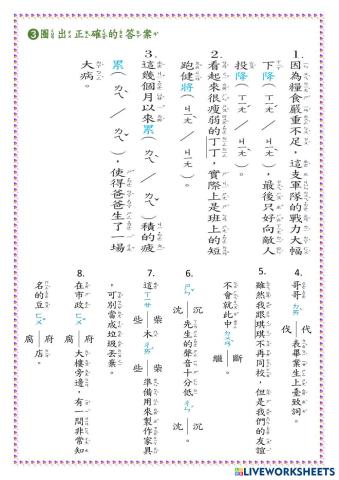 ❸圈出正確的答案
1.因為糧食嚴重不足，這支軍隊的戰力大幅
下降（ㄐㄧㄤˋ／ㄒㄧㄤˊ），最後只好向敵人
投降（ㄐㄧㄤˋ／ㄒㄧㄤˊ）。
2.看起來很瘦弱的丁丁，實際上是班上的短
跑健將（ㄐㄧㄤ／ㄐㄧㄤˋ）。
3.這幾個月以來累（ㄌㄟˇ／ㄌㄟˋ）積的疲
累（ㄌㄟˇ／ㄌㄟˋ），使得爸爸生了一場
大病。
4.哥哥ㄉㄞˋ 代 伐 表畢業生上臺致詞。
5.雖然我跟琪琪不再同校，但是我們的友誼
不會就此中ㄉㄨㄢˋ 斷 繼。
6.ㄕㄣˇ 沉 沈 先生的聲音十分低ㄔㄣˊ 沉 沈。
7.這ㄒㄧㄝ 柴 些 木ㄔㄞˊ 柴 些 準備用來製作家具
，可別當成垃圾丟棄。
8.在市政ㄈㄨˇ 府 腐 大樓旁邊，有一間非常知
名的豆ㄈㄨˇ 府 腐 店。
LIVEWORKSHEETS